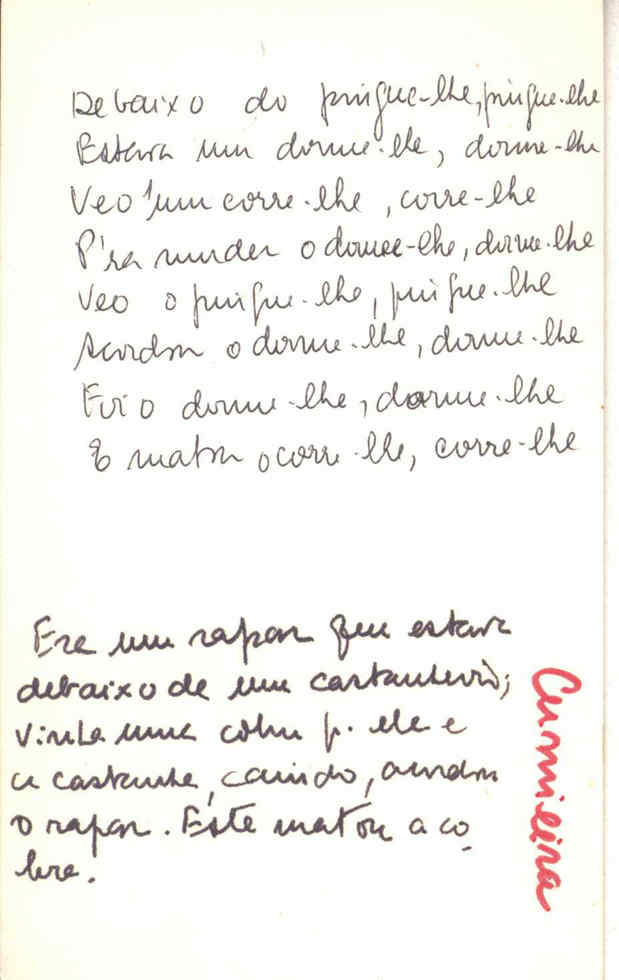 Debaixo do pingue-lhe, pingue-lhe
Estava um dorme-lhe, dorme-lhe
Veo 'um corre-lhe, corre-lhe
P'ra murder o dorme-lhe, dorme-lhe
Veo o pingue-lhe, pingue-lhe
Acordou o dorme-lhe, dorme-lhe
Foi o dorme-lhe, dorme-lhe
E matou o corre-lhe, corre-lhe
Era um rapaz que estava
debaixo de um castanheiro;
vinha uma cobra p. ele e
a castanha, caindo, acordou
o rapaz. Este matou a co
bra.
Cumieira